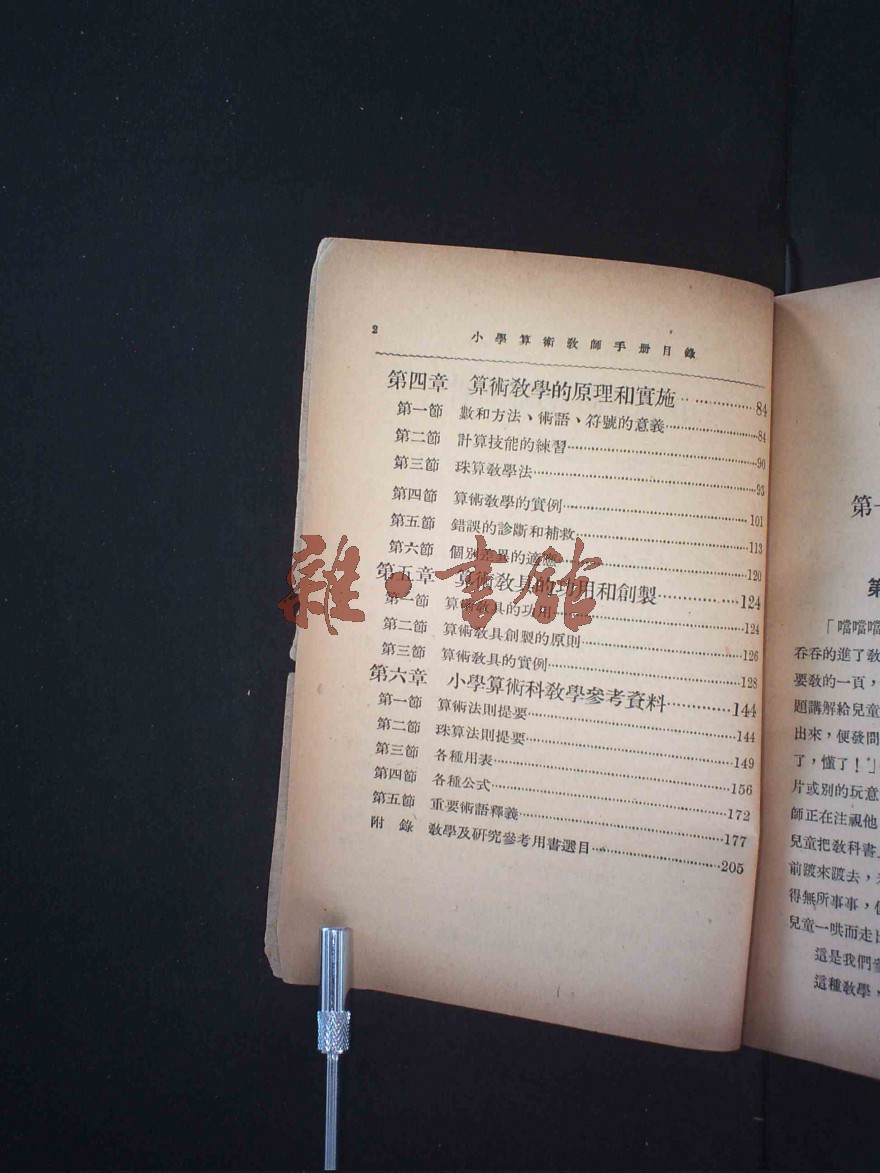 2 小學算術教師手册目錄
第四章 算術教學的原理和實施 84
第一節 數和方法、術語、符號的意義 84
第二節 計算技能的練習 90
第三節 珠算教學法 93
第四節 算術教學的實例 101
第五節 錯誤的診斷和補救 113
第六節 個別差異的適應 120
第五章 算術教具的功用和創製 124
第一節 算術教具的功用 124
第二節 算術教具創製的原則 126
第三節 算術教具的實例 128
第六章 小學算術科教學參考資料 144
第一節 算術法則提要 144
第二節 珠算法則提要 149
第三節 各種用表 156
第四節 各種公式 172
第五節 重要術語釋義 177
附錄 教學及研究參考用書選目 205
雜·書館
第
第
「噹噹噹
吞吞的進了教
要教的一頁，
題講解給兒童
出來，便發問
了，懂了！」
片或別的玩意
師正在注視他
兒童把教科書
前踱來踱去，
得無所事事，
兒童一哄而走
這是我們
這種教學，